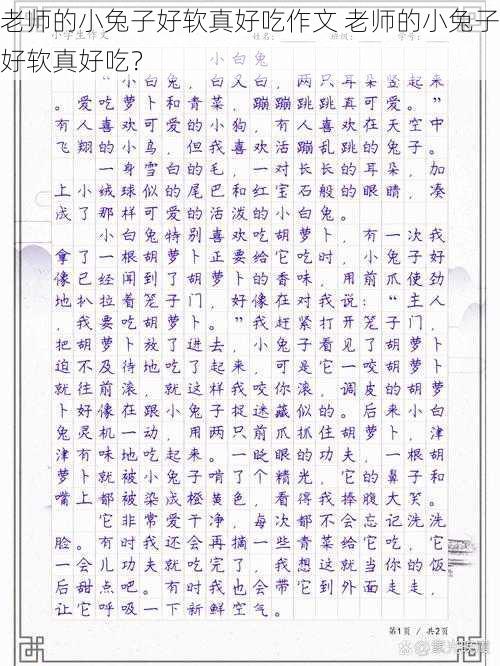 老师的小兔子好软真好吃作文 老师的小兔子
好软真好吃？
小白兔
“小白兔，白又白，两只耳朵竖起来
。爱吃萝卜和青菜，蹦蹦跳跳真可爱。”
有人喜欢可爱的小狗，有人喜欢在天空中
飞翔的小鸟，但我喜欢活蹦乱跳的兔子。
一身雪白的毛，一对长长的耳朵，加
上小绒球似的尾巴和红宝石般的眼睛，凑
成了那样可爱的活泼的小白兔。
小白兔特别喜欢吃胡萝卜，有一次我
拿了一根胡萝卜正要给它吃时，小兔子好
像已经闻到了胡萝卜的香味，用前爪使劲
地扒拉着笼子门，好像在对我说：“主人
，我要吃胡萝卜。”我赶紧打开笼子门，
把胡萝卜放了进去，小兔子看见了胡萝卜
迫不及待地吃了起来，可是它一咬胡萝卜
就往前滚，就这样我咬你滚，调皮的胡萝
卜好像在跟小兔子捉迷藏似的。后来小白
兔灵机一动，用两只前爪抓住胡萝卜，津
津有味地吃起来。一眨眼的功夫，一根胡
萝卜就被小兔子啃了个精光，它的鼻子和
嘴上都被染成橙黄色，看得我捧腹大笑。
它非常爱干净，每次都不会忘记洗洗
脸。有时我还会再摘一些青菜给它吃，它
一会儿功夫就吃完了，我想这就当你的饭
后甜点吧。有时我也会带它到外面走走，
让它呼吸一下新鲜空气。
第1页 / 共2页